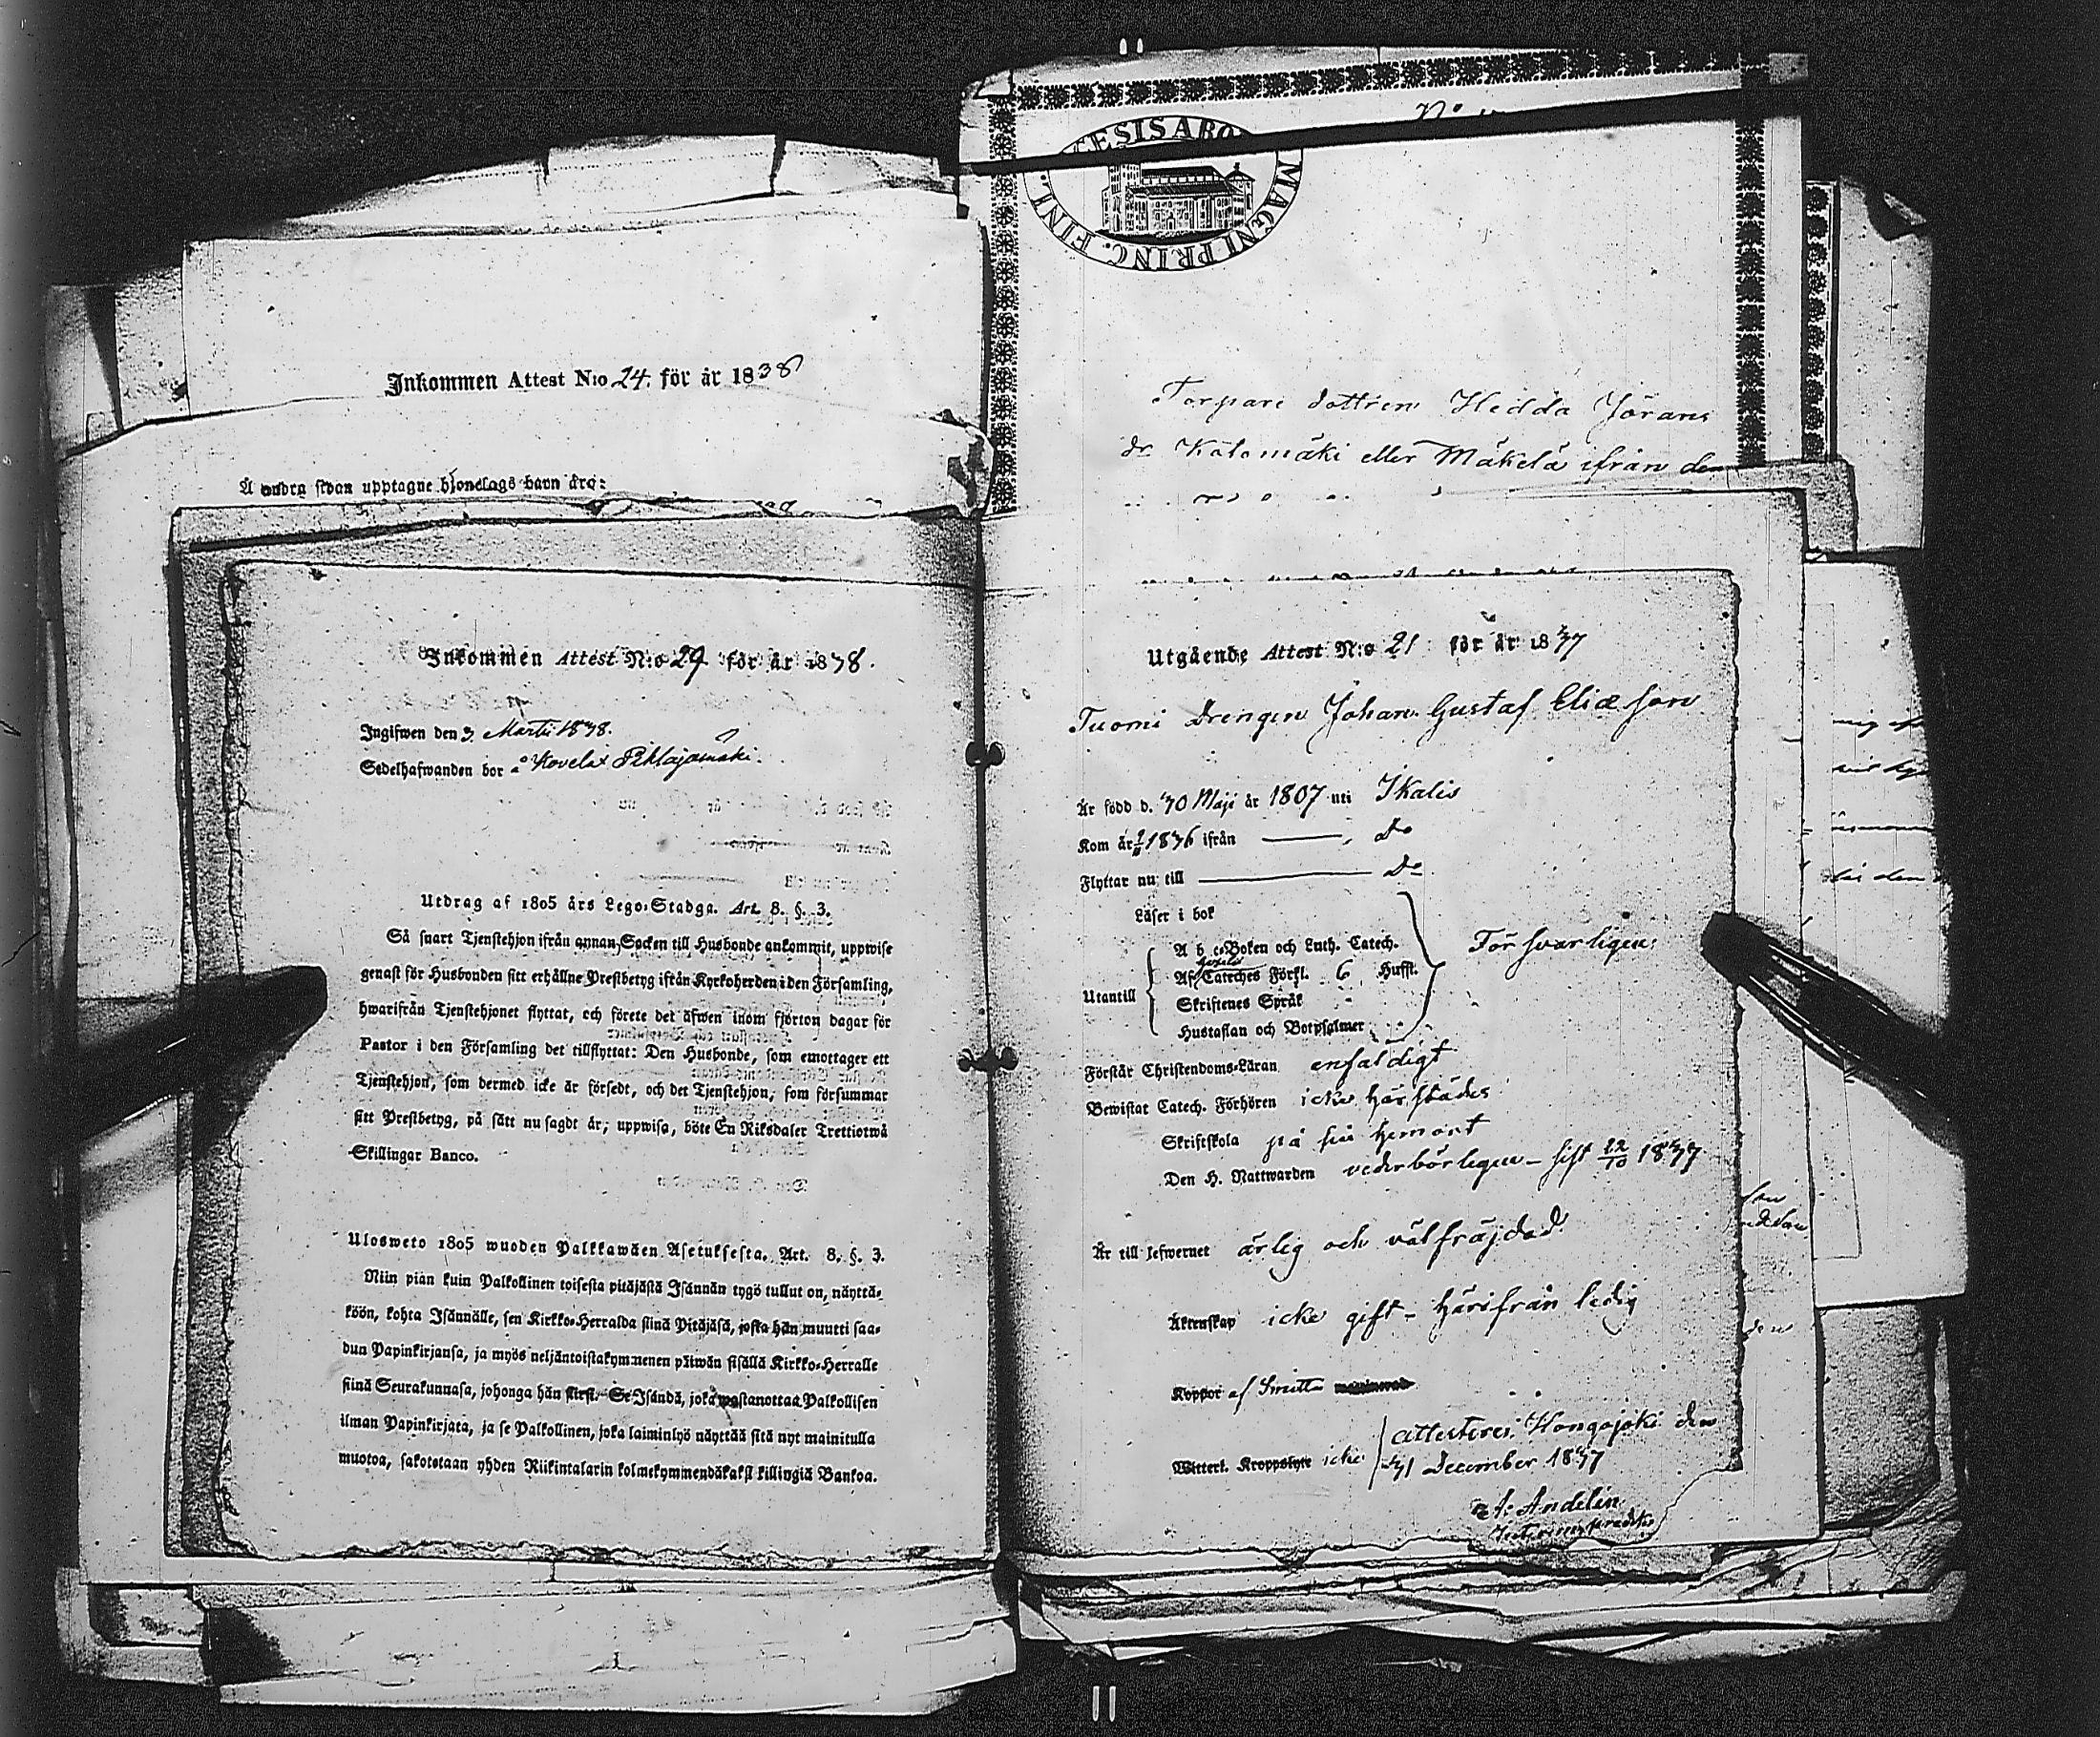 Inkommen Attest N:o 24. för år 1838
Å andra sidan upptagne hjonelags barn äro:
Inkommen Attest N:o 29 för år 1838.
Ingifwen den 3 Martii 1838.
Sedelhafwanden bor å Kovelax Pihlajamäki.
Utdrag af 1805 års Lego-Stadga. Art. 8. §. 3.
Så snart Tjenstehjon ifrån annan Socken till Husbonde ankommit, uppwise
genast för Husbonden sitt erhållne Prestbetyg ifrån Kyrkoherden i den Församling,
hwarifrån Tjenstehjonet flyttat, och förete det äfwen inom fjorton dagar för
Pastor i den Församling det tillflyttat: Den Husbonde, som emottager ett
Tjenstehjon, som dermed icke är försedt, och det Tjenstehjon, som försummar
sitt Prestbetyg, på sätt nu sagdt är, uppwisa, böte En Riksdaler Trettiotwå
Skillingar Banco.
Ulosweto 1805 wuoden Palkkawäen Asetuksesta. Art. 8. §. 3.
Niin pian kuin Palkollinen toisesta pitäjästä Isännän tygö tullut on, näyttä-
köön, kohta Isännälle, sen Kirkko-Herralda siinä Pitäjäsä, josta hän muutti saa-
dun Papinkirjansa, ja myös neljäntoistakymmenen päiwän sisällä Kirkko-Herralle
siinä Seurakunnasa, johonga hän siirsi. Se Isändä, joka wastanottaa Palkollisen
ilman Papinkirjata, ja se Palkollinen, joka laiminlyö näyttää sitä nyt mainitulla
muotoa, sakotetaan yhden Riikintalarin kolmekymmendäkaksi killingiä Bankoa.
MAGNI PRINC. FINL.
Torpare dottren Hedda Jörans
dr Kälomäki eller Mäkelä ifrån den
Utgående Attest N:o 21 för år 1837
Tuomi Drengen Johan Gustaf Eliæ son
Är född d. 30 Maji år 1807 uti Ikalis
Kom år 1836 ifrån — Do
Flyttar nu till — Do
Läser i bok
A b c-Boken och Luth. Catech.
Af Cateches Förkl. 6 Hufst.
Utantill
Skriftenes Språk
Hustaflan och Botpsalmer
Försvarligen
Förstår Christendoms-Läran enfaldigt
Bewistat Catech. Förhören icke härstädes
Skriftskola på sin hemort
Den H. Nattwarden vederbörligen – sist 22/10 1837
Är till lefwernet ärlig och välfräjdad
Äktenskap icke gift – härifrån ledig
Koppor af Smitta
Witterl. Kroppslyte icke
attesterar Hongojoki den
31 December 1837
A: Andelin